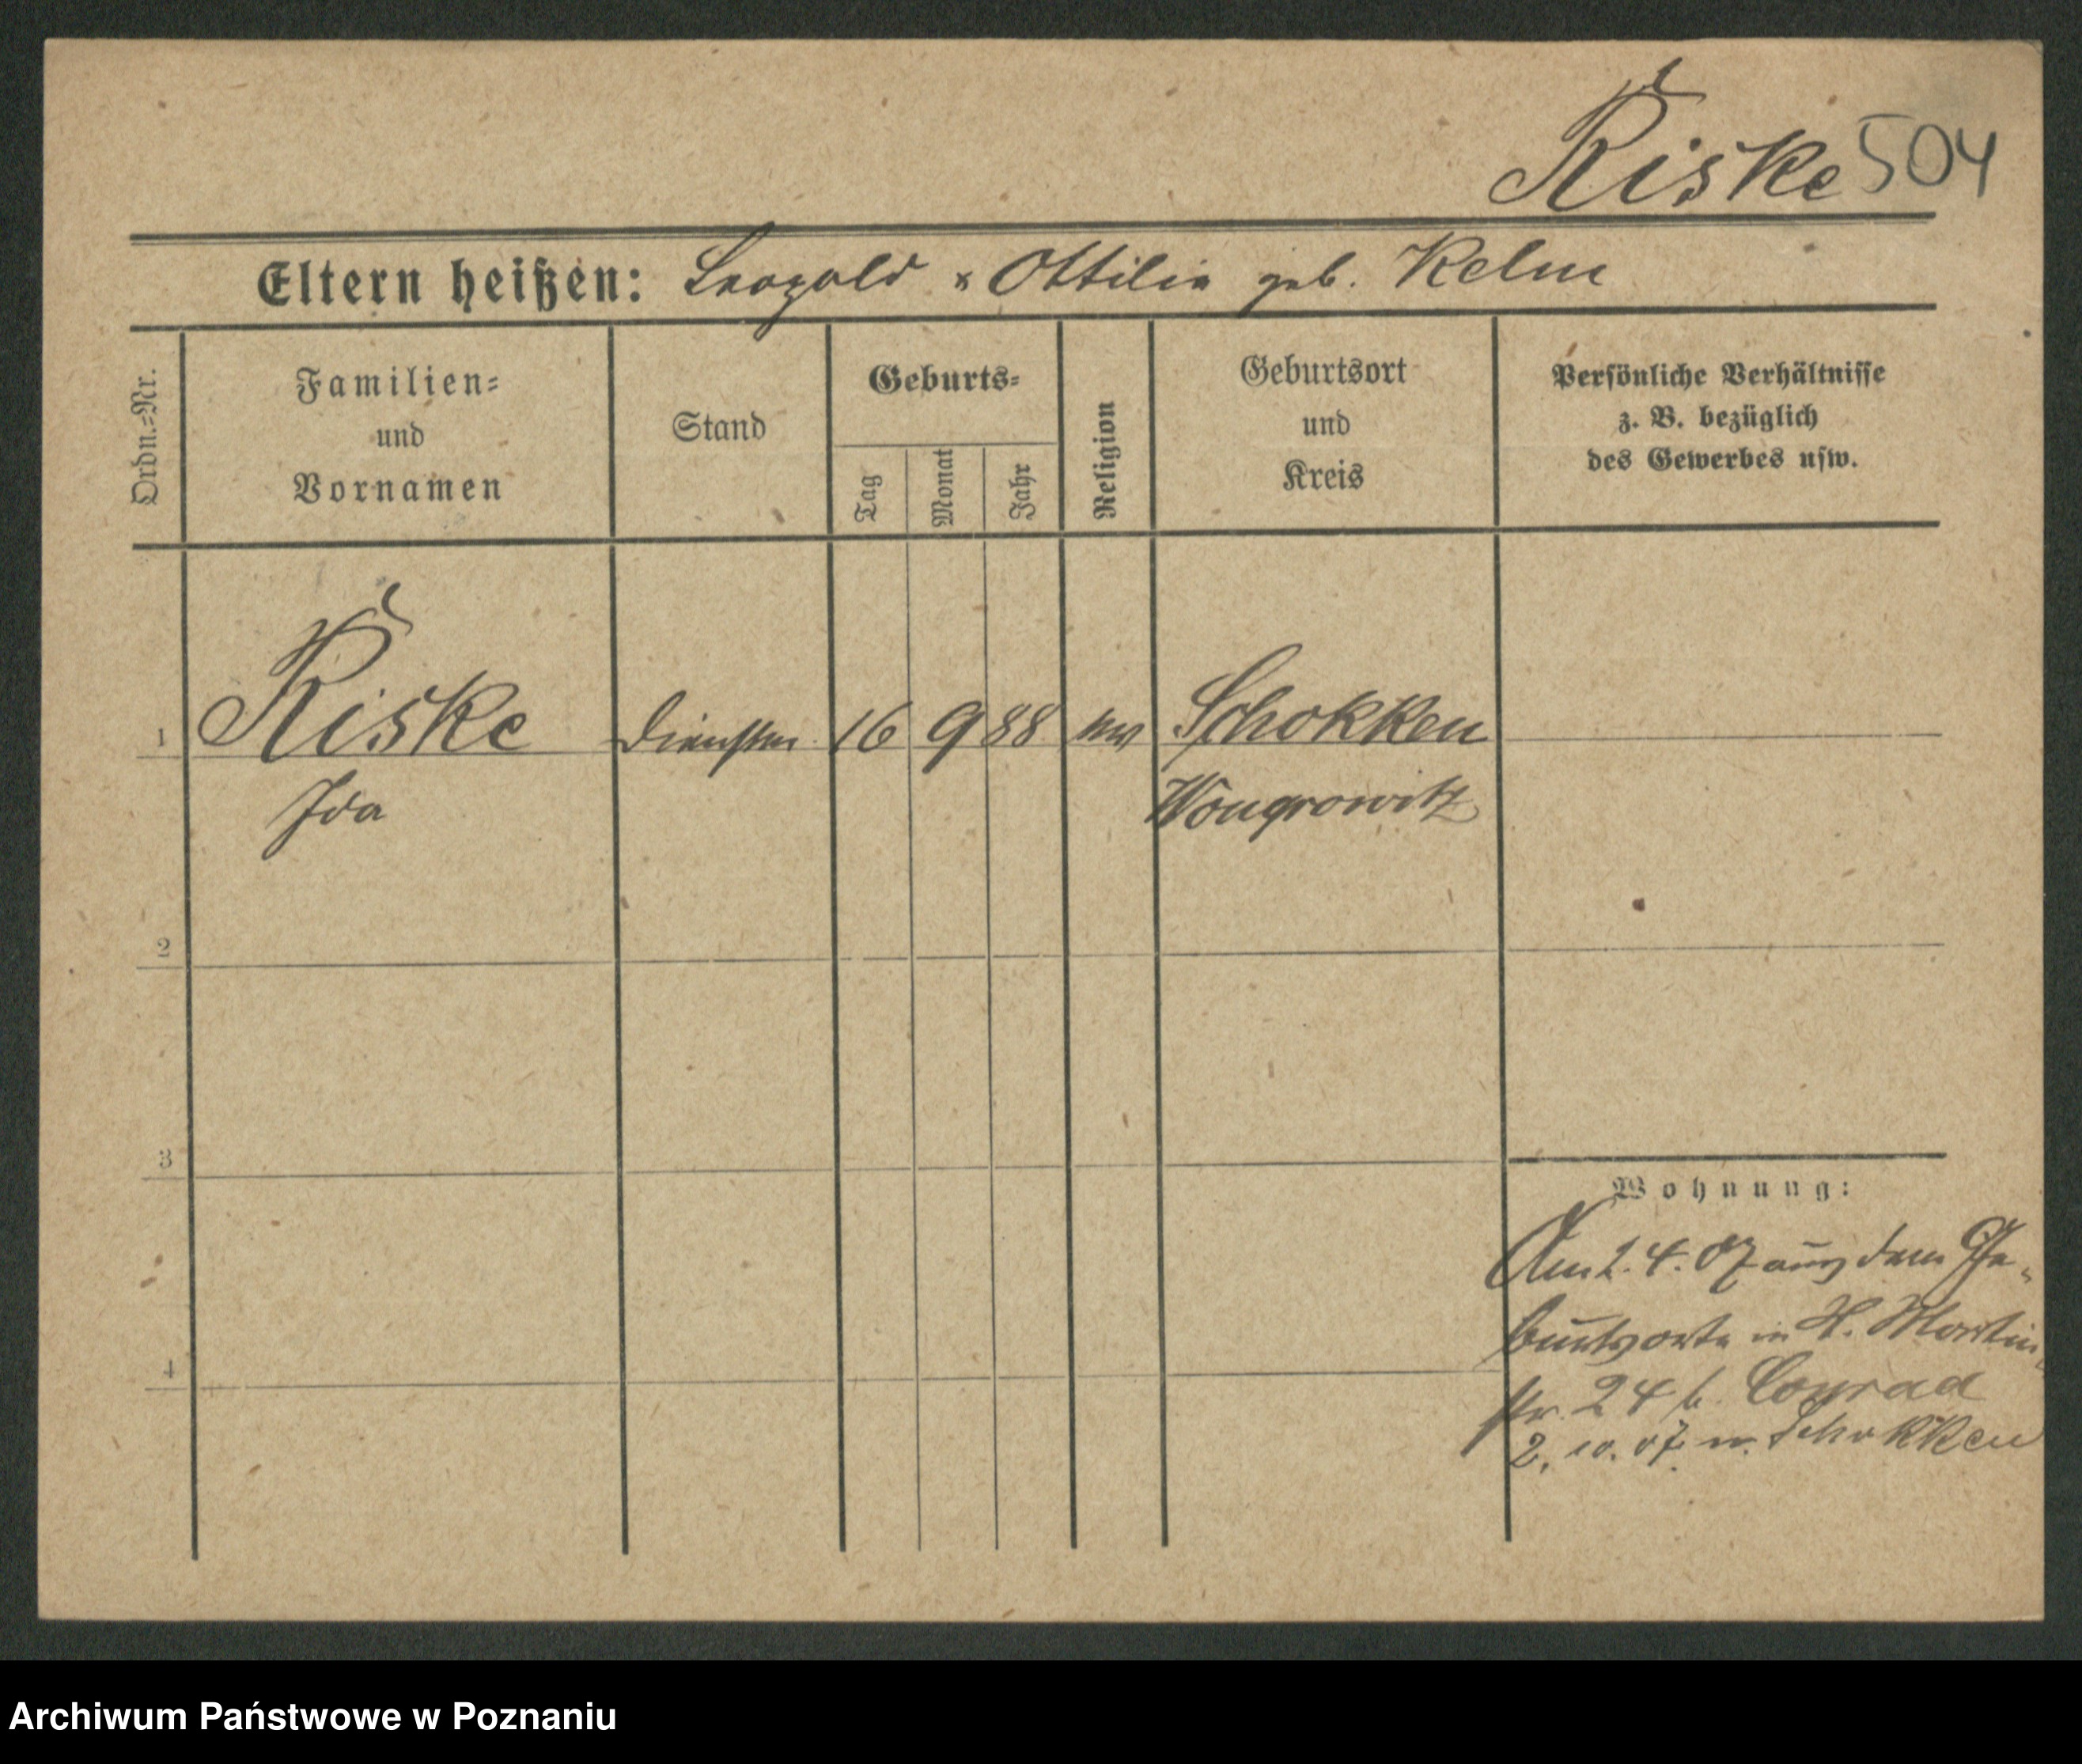 Riske 504
Eltern heißen: Leopold & Ottilie geb. Kelm
Ordn.-Nr.
Familien-
und
Vornamen
Stand
Geburts-
Tag
Monat
Jahr
Religion
Geburtsort
und
Kreis
Persönliche Verhältnisse
z. B. bezüglich
des Gewerbes usw.
1 Riske 16 9 88 Schokken
Ida Wongrowitz
2
3
4
Wohnung:
Am 2. 4. 07 aus dem Ge-
burtsorte in St. Martin-
str. 24 b. Conrad
2. 10. 07 n. Schokken
Archiwum Państwowe w Poznaniu